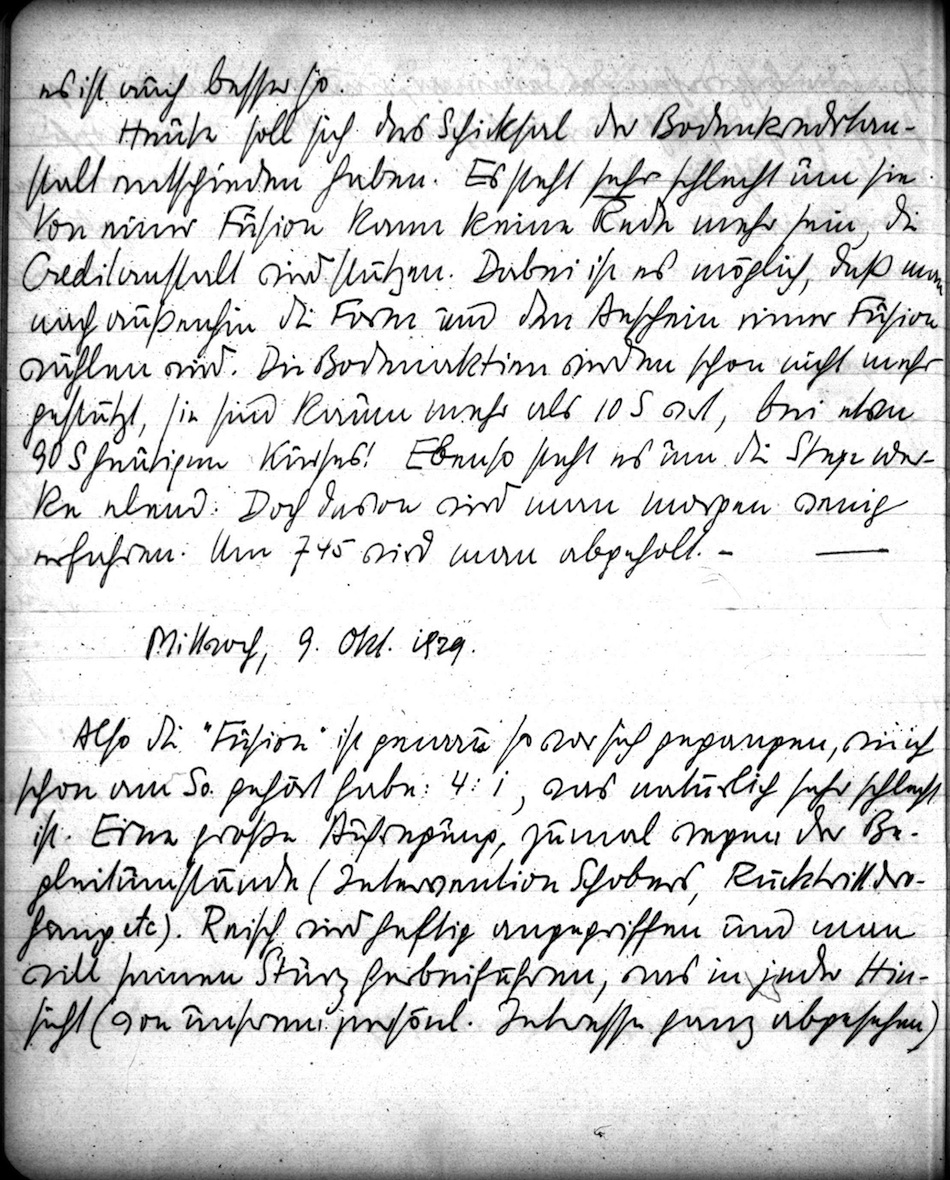 es ist auch besser so.
Heute soll sich das Schicksal der Bodenkreditan-
stalt entschieden haben. Es steht sehr schlecht um sie.
Von einer Fusion kann keine Rede mehr sein, die
Creditanstalt wird stützen. Dabei ist es möglich, daß man
nach außenhin die Form und den Anschein einer Fusion
wählen wird. Die Bodenaktien werden schon nicht mehr
gestützt, sie sind kaum mehr als 10 S wert, bei etwa
90 S heutigem Kurses! Ebenso steht es um die Steyrwer-
ke elend. Doch davon wird man morgen wenig
erfahren. Um 745 wird man abgeholt. –
Mittwoch, 9. Okt. 1929.
Also die "Fusion" ist genau so vor sich gegangen, wie ich
schon am So. gehört habe: 4:1, was natürlich sehr schlecht
ist. Eine große Aufregung, zumal wegen der Be-
gleitumstände (Intervention Schobers, Rücktrittdro-
hung etc). Reisch wird heftig angegriffen und man
will seinen Sturz herbeiführen, was in jeder Hin-
sicht (von unserem persönl. Interesse ganz abgesehen)